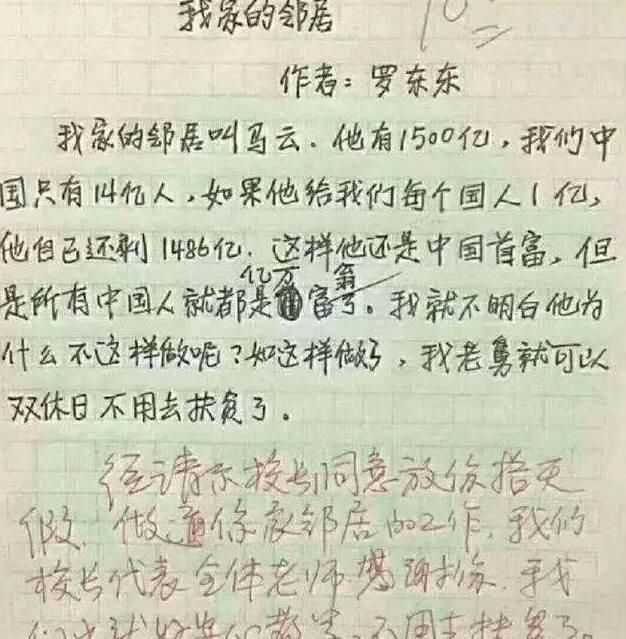 我家的邻居
10
作者：罗东东
我家的邻居叫马云．他有1500亿，我们中
国只有14亿人，如果他给我们每个国人1亿，
他自己还剩1486亿．这样他还是中国首富，但
亿万 翁
是所有中国人就都是富了。我就不明白他为
什么不这样做呢？如这样做了，我老舅就可以
双休日不用去扶贫了。
经请示校长同意放你拾天
假．做通你家邻居的工作．我们
校长代表全体老师感谢你．我
们也就好安心教书．不用去扶贫了。